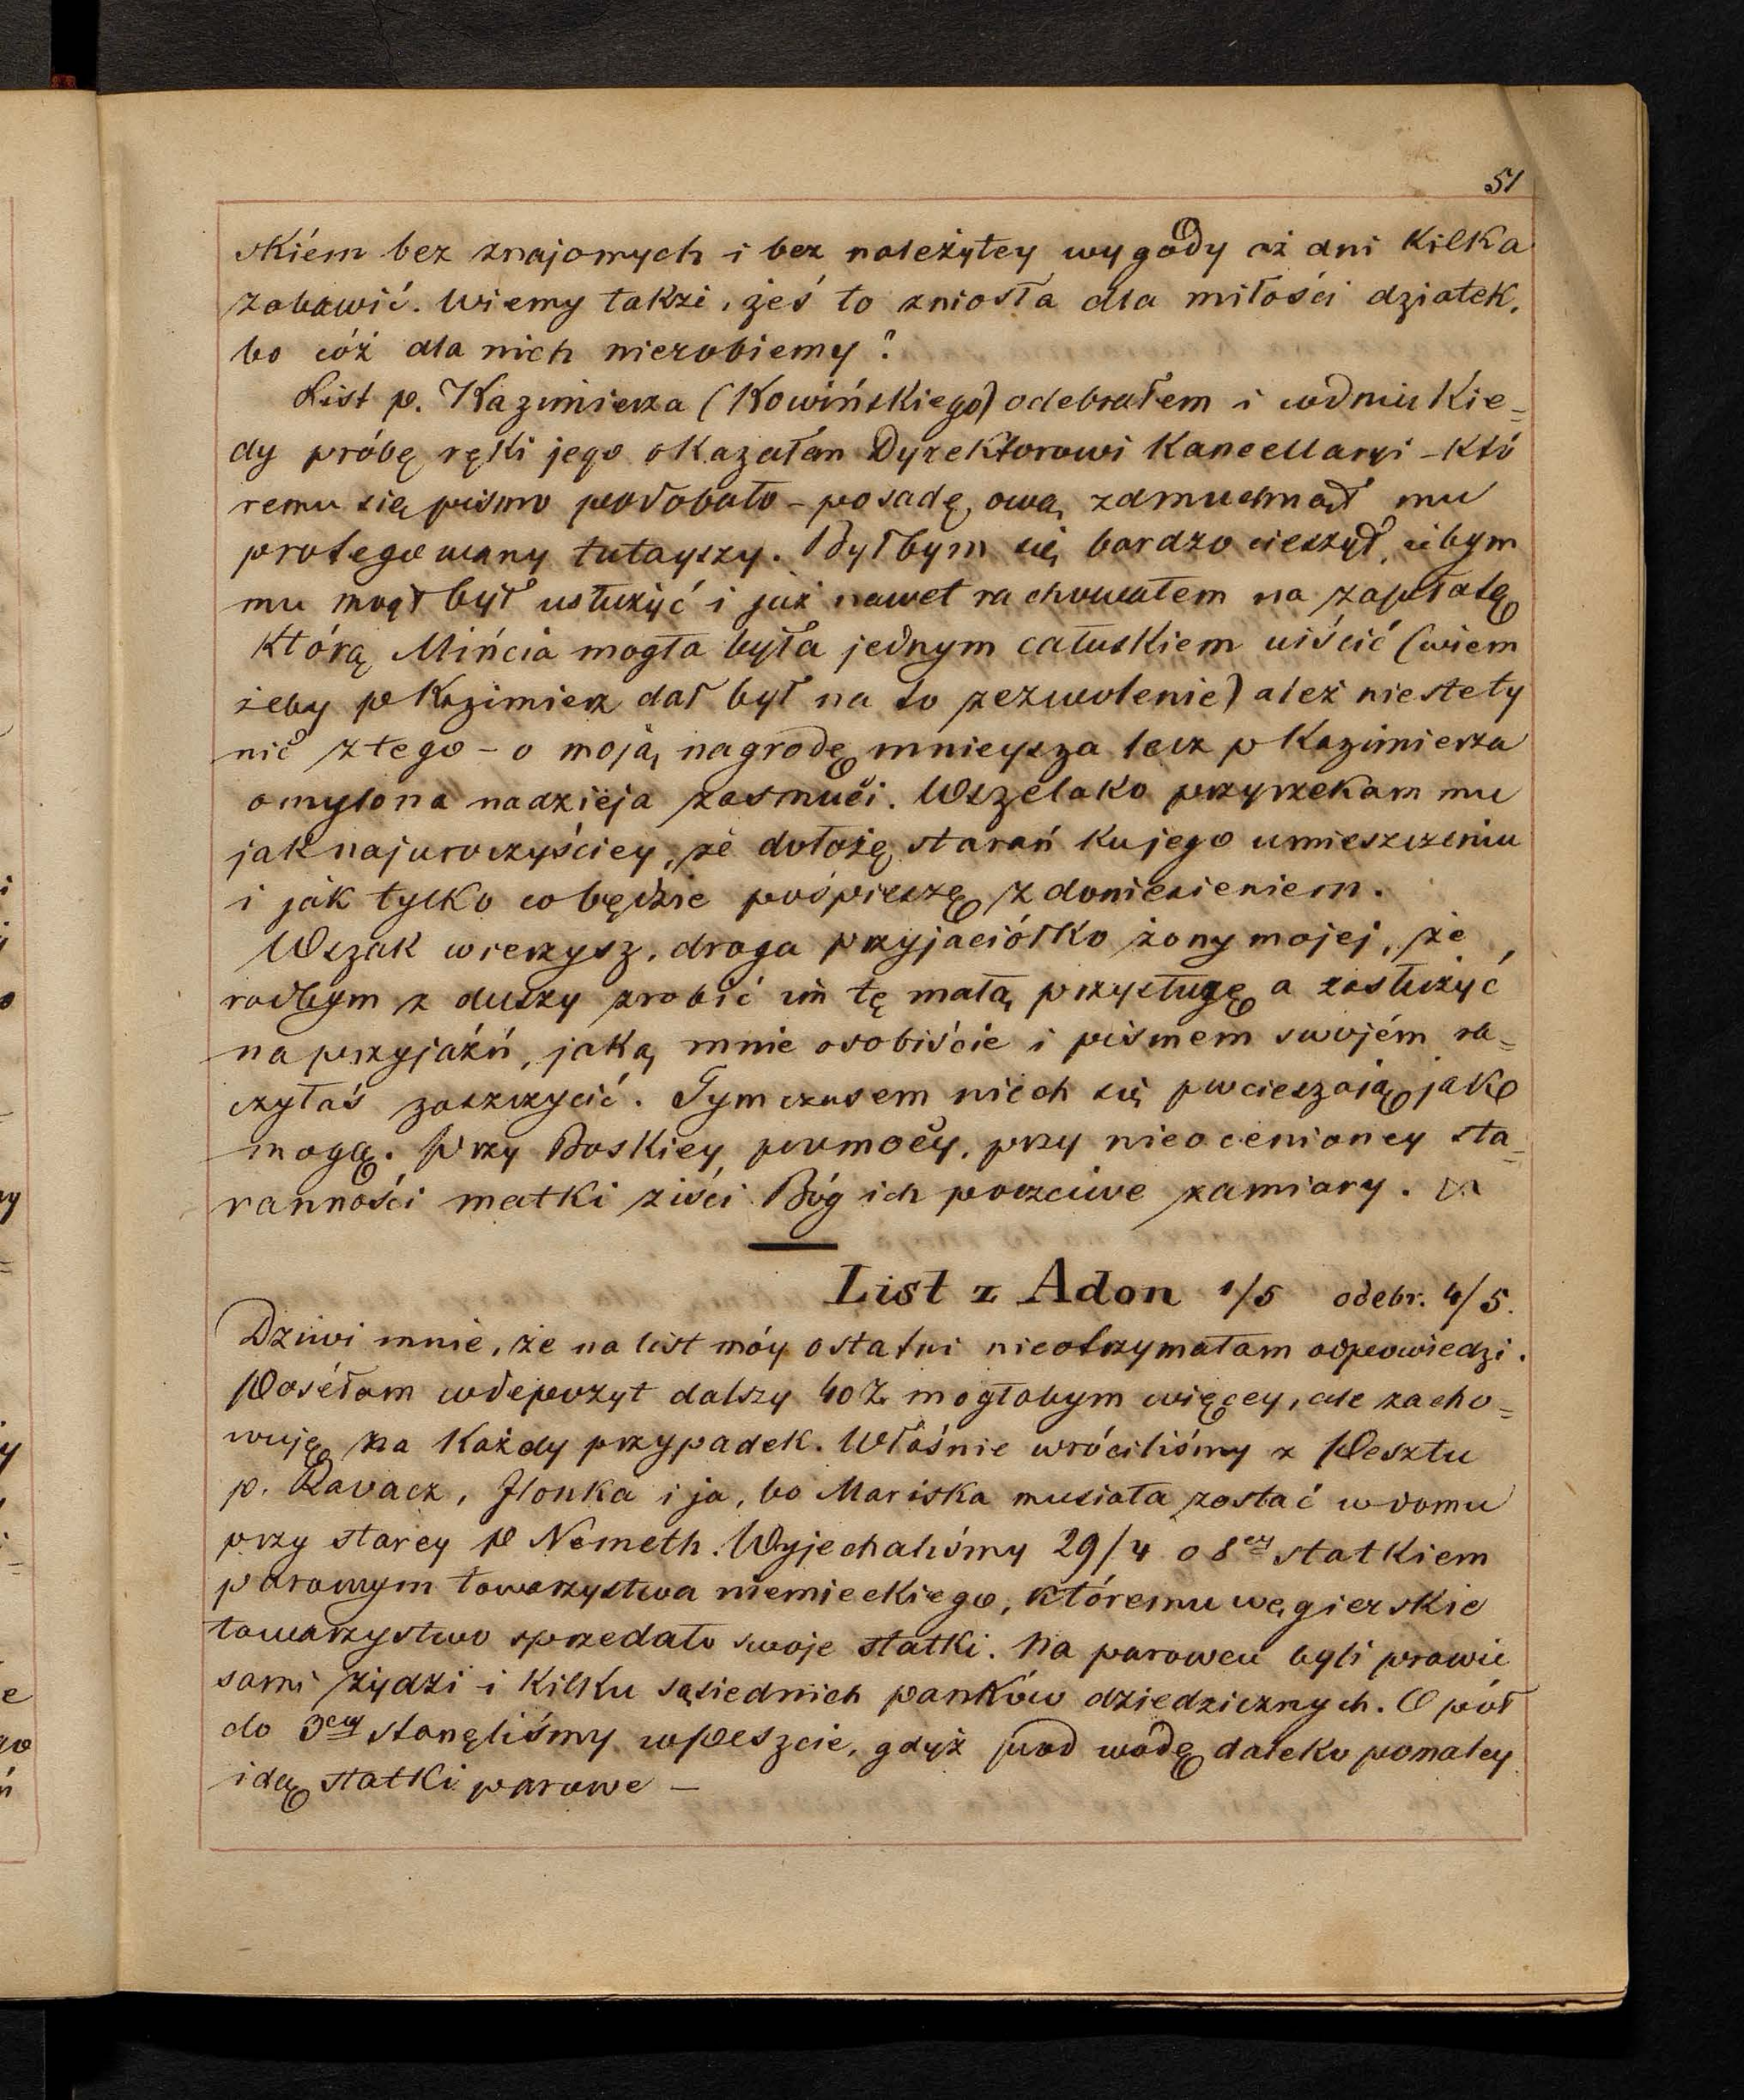 51
skiém bez znajomych i bez należytey wygody aż dni kilka
zabawić. Wiemy takze, żeś to zniosła dla miłości dziatek,
bo cóż dla nich niezrobiemy?
List p. Kazimierza (Kowińskiego) odebrałem i wdniu kie=
dy próbę ręki jego okazałem Dyrektorowi Kancellaryi - któ
remu się pismo podobało - posadę ową zdmuchnął mu
protegowany tutayszy. Byłbym się bardzo cieszył, gdybym
mu mógł był usłużyć i już nawet rachowałem na zapłatę
którą Mińcia mogła była jednym całuskiem uiścić (wiem
żeby p Kazimierz dał był na to zezwolenie) ależ niestety
nic z tego - o moją nagrodę mnieysza lecz p Kazimierza
omylona nadzieja zasmuci. Wszelako przyrzekam mu
jaknajuroczyściey, że dołożę starań ku jego umieszczeniu
i jak tylko co będzie pośpieszę z doniesieniem.
Wszak wierzysz, droga przyjaciółko żony mojej, że
radbym z duszy zrobić im tę małą przysługę a zasłużyć
na przyjaźń, jaką mnie osobiście i pismem swojém ra=
czyłaś zaszczycić. Tymczasem niech się pocieszają jako
mogą. Przy Boskiey pomocy, przy nieocenioney sta=
ranności matki ziści Bóg ich poczciwe zamiary.
List z Adon 1/5 odebr. 4/5.
Dziwi mnie, że na list móy ostatni nieotrzymałam odpowiedzi.
Posełam wdepozyt dalszy 40 mogłabym więcey, ale zacho=
wuję na każdy przypadek. Właśnie wróciliśmy z Pesztu
p. Ravacz, Ilonka i ja, bo Mariska musiała zostać w domu
przy starey p Nemeth. Wyjechaliśmy 29/4 o 8ey statkiem
parowym towarzystwa niemieckiego, któremu węgierskie
towarzystwo sprzedało swoje statki. Na parowcu byli prawie
sami żydzi i kilku sąsiednich panków dziedzicznych. O pół
do 3ey stanęliśmy w Peszcie, gdyż pod wodę daleko pomaley
idą statki parowe -